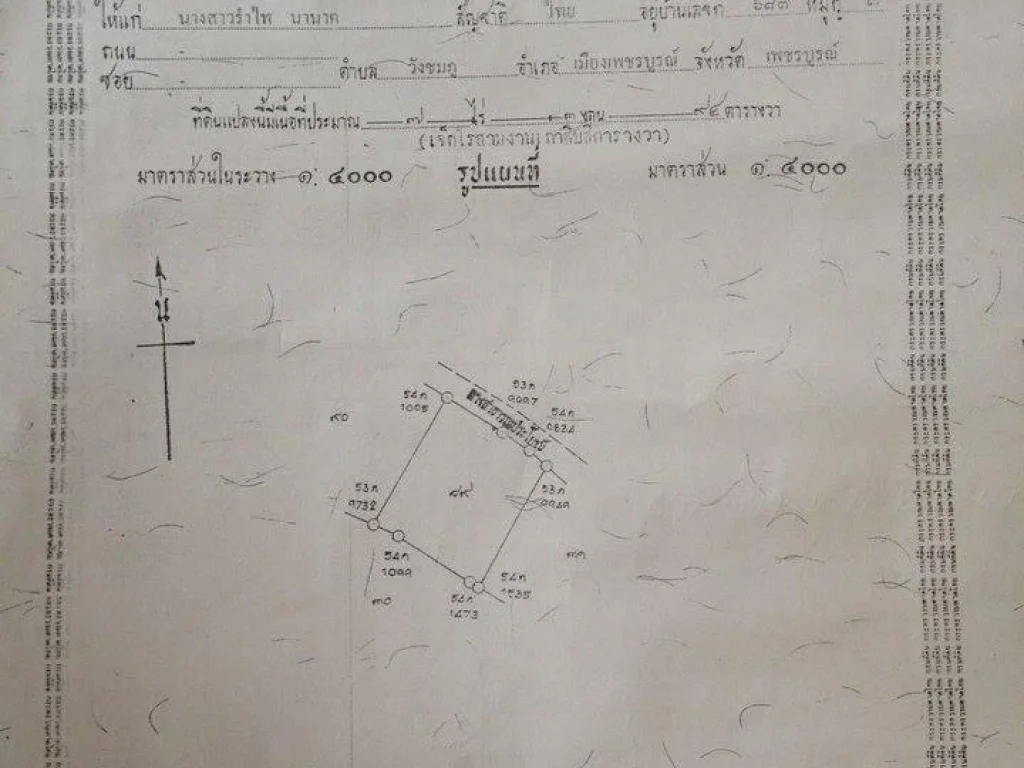 ให้แก่ นางสาวรำไพ นานาค สัญชาติ ไทย อยู่บ้านเลขที่ ๖๘๗ หมู่ที่
ถนน -
ซอย - ตำบล วังชมภู อำเภอ เมืองเพชรบูรณ์ จังหวัด เพชรบูรณ์
ที่ดินแปลงนี้มีเนื้อที่ประมาณ ๗ ไร่ ๓ งาน ๙๔ ตารางวา
(เจ็ดไร่สามงานเก้าสิบสี่ตารางวา)
มาตราส่วนในระวาง ๑: ๔๐๐๐ รูปแผนที่ มาตราส่วน ๑: ๔๐๐๐
น
53ก
54ก
1005
54ก
ทางสาธารณประโยชน์
๙๐
53ก
๘๙
53ก
54ก
54ก
๓๐
54ก
1473